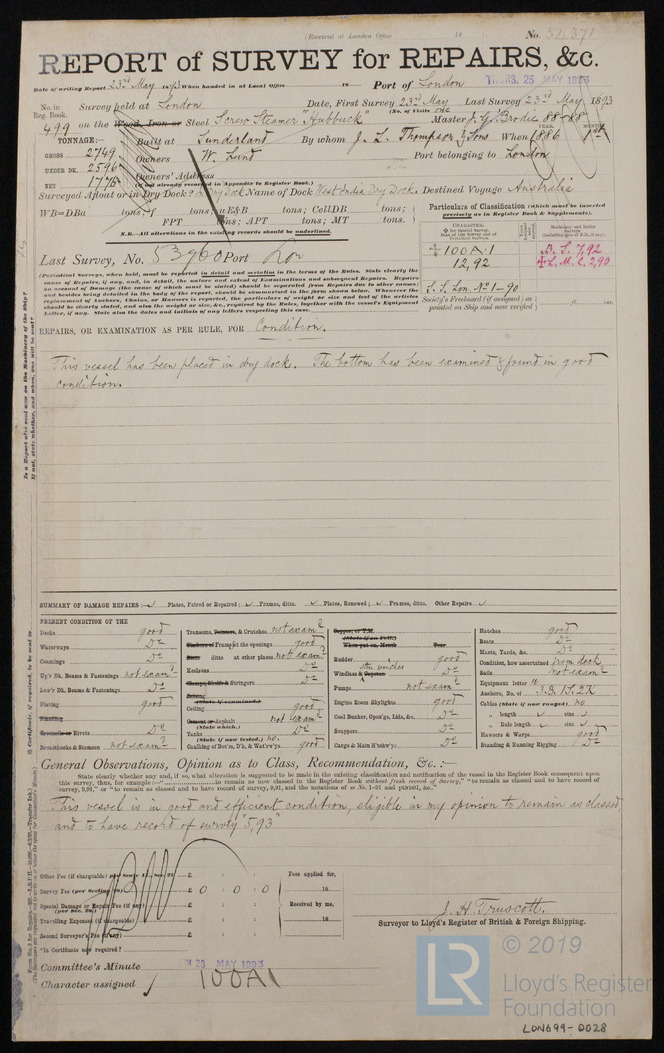 (Received at London Office 18 No. 54371
REPORT of SURVEY for REPAIRS, &c.
Date of writing Report 23rd May 1893 When handed in at Local Office 18 Port of London THURS. 25 MAY 1893
No. in Reg. Book. Survey held at London Date, First Survey 23rd May Last Survey 23rd May 1893
(No. of Visits one
499 on the Wood, Iron or Steel Screw Steamer "Hubbuck" Master J. G. Brodie 88-88
TONNAGE:— Built at Sunderland By whom J. L. Thompson & Sons When 1886
YEAR. MONTH.
GROSS 2749 Owners W. Lund Port belonging to London
UNDER DK. 2596 Owners' Address
NET 1775 (if not already recorded in Appendix to Register Book.)
Surveyed Afloat or in Dry Dock? Dry Dock Name of Dock West India Dry Dock. Destined Voyage Australia
WB=DBa tons; f tons; uE&B tons; CellDB tons;
FPT tons; APT tons; MT tons.
N.B.—All alterations in the existing records should be underlined.
Particulars of Classification (which must be inserted precisely as in Register Book & Supplements).
CHARACTER.
100 A.1
12,92
B.S. 7,92
L.M.C. 2,90
S.S. Lon. No 1-90
Society's Freeboard (if assigned) as painted on Ship and now verified
Last Survey, No. 53960 Port Lon
(Periodical Surveys, when held, must be reported in detail and seriatim in the terms of the Rules. State clearly the cause of Repairs, if any, and, in detail, the nature and extent of Examinations and subsequent Repairs. Repairs on account of Damage (the cause of which must be stated) should be separated from Repairs due to other causes; and besides being detailed in the body of the report, should be summarised in the form shown below. Whenever the replacement of Anchors, Chains, or Hawsers is reported, the particulars of weight or size and test of the articles should be clearly stated, and also the weight or size, &c., required by the Rules, together with the vessel's Equipment Letter, if any. State also the dates and initials of any letters respecting this case.
REPAIRS, OR EXAMINATION AS PER RULE, FOR Condition.
This vessel has been placed in dry dock. The bottom has been examined & found in good
condition.
SUMMARY OF DAMAGE REPAIRS:— Plates, Faired or Repaired; Frames, ditto. Plates, Renewed; Frames, ditto. Other Repairs
PRESENT CONDITION OF THE
Decks good
Waterways Do
Coamings Do
Up'r Dk. Beams & Fastenings not exam?
Low'r Dk. Beams & Fastenings Do
Plating good
Planking
Treenails or Rivets Do
Breasthooks & Stemson not exam?
Transoms, Pointers, & Crutches not exam?
Timbers of Frame at the openings good
ditto ditto at other places not exam?
Keelsons Do
Clamps, Shelfs & Stringers Do
Ceiling good
Cement or Asphalt not exam?
(State which.)
Tanks Do
(State if now tested.) no.
Caulking of Bot'm, D'k, & Wat'rw'ys good
Copper, or Y.M.
(State if on Felt)
When put on, Month Year
Rudder good
Windlass & Capstan stm winches Do
Pumps not exam?
Engine Room Skylights good
Coal Bunker, Open'gs, Lids, &c. Do
Scuppers Do
Cargo & Main H'tchw'ys Do
Hatches good
Boats Do
Masts, Yards, &c. Do
Condition, how ascertained from deck
Sails not exam?
Equipment letter
Anchors, No. of 3.B 1S. 2K
Cables (State if now ranged) no
„ length size
„ Rule length size
Hawsers & Warps good
Standing & Running Rigging Do
General Observations, Opinion as to Class, Recommendation, &c. :—
State clearly whether any and, if so, what alteration is suggested to be made in the existing classification and notification of the vessel in the Register Book consequent upon this survey, thus, for example:—"to remain as now classed in the Register Book without fresh record of Survey," "to remain as classed and to have record of survey, 9,91," or "to remain as classed and to have record of survey, 9,91, and the notations of ss No. 1-91 and pt&bt91, &c."
This vessel is in good and efficient condition, eligible in my opinion to remain as classed
and to have record of survey "5,93"
Office Fee (if chargeable) £ : :
Survey Fee (per Section 28) £ 0 : 0 : 0
Special Damage or Repair Fee (if any) £ : :
(per Sec. 28.)
Travelling Expenses (if chargeable) £ : :
Second Surveyor's Fee (if any) £ : :
Is Certificate now required?
Fees applied for, 18
Received by me, 18
J. H. Truscott.
Surveyor to Lloyd's Register of British & Foreign Shipping.
Committee's Minute MAY 1893
Character assigned 100A1
LR © 2019
Lloyd's Register
Foundation
LON699-0028